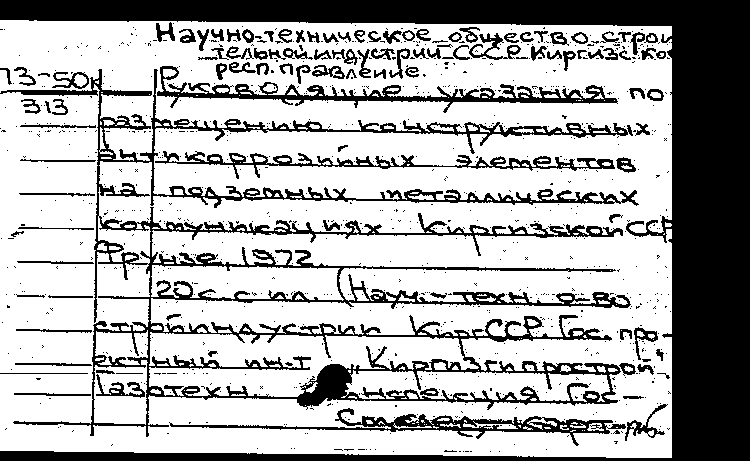 Научно-техническое общество строи
тельной индустрии СССР. Киргизс. ко
респ. правление.
73-50к Руководящие указания по
313
размещению конструктивных
антикоррозийных элементов
на подземных металлических
коммуникациях Киргизской ССР
Фрунзе, 1972.
20 с. с ил. (Науч.-техн. о-во
стройиндустрии КиргССР. Гос. про-
ектный ин-т „Киргизгипрострой"
Газотехн. инспекция Гос-
См. след. карт.